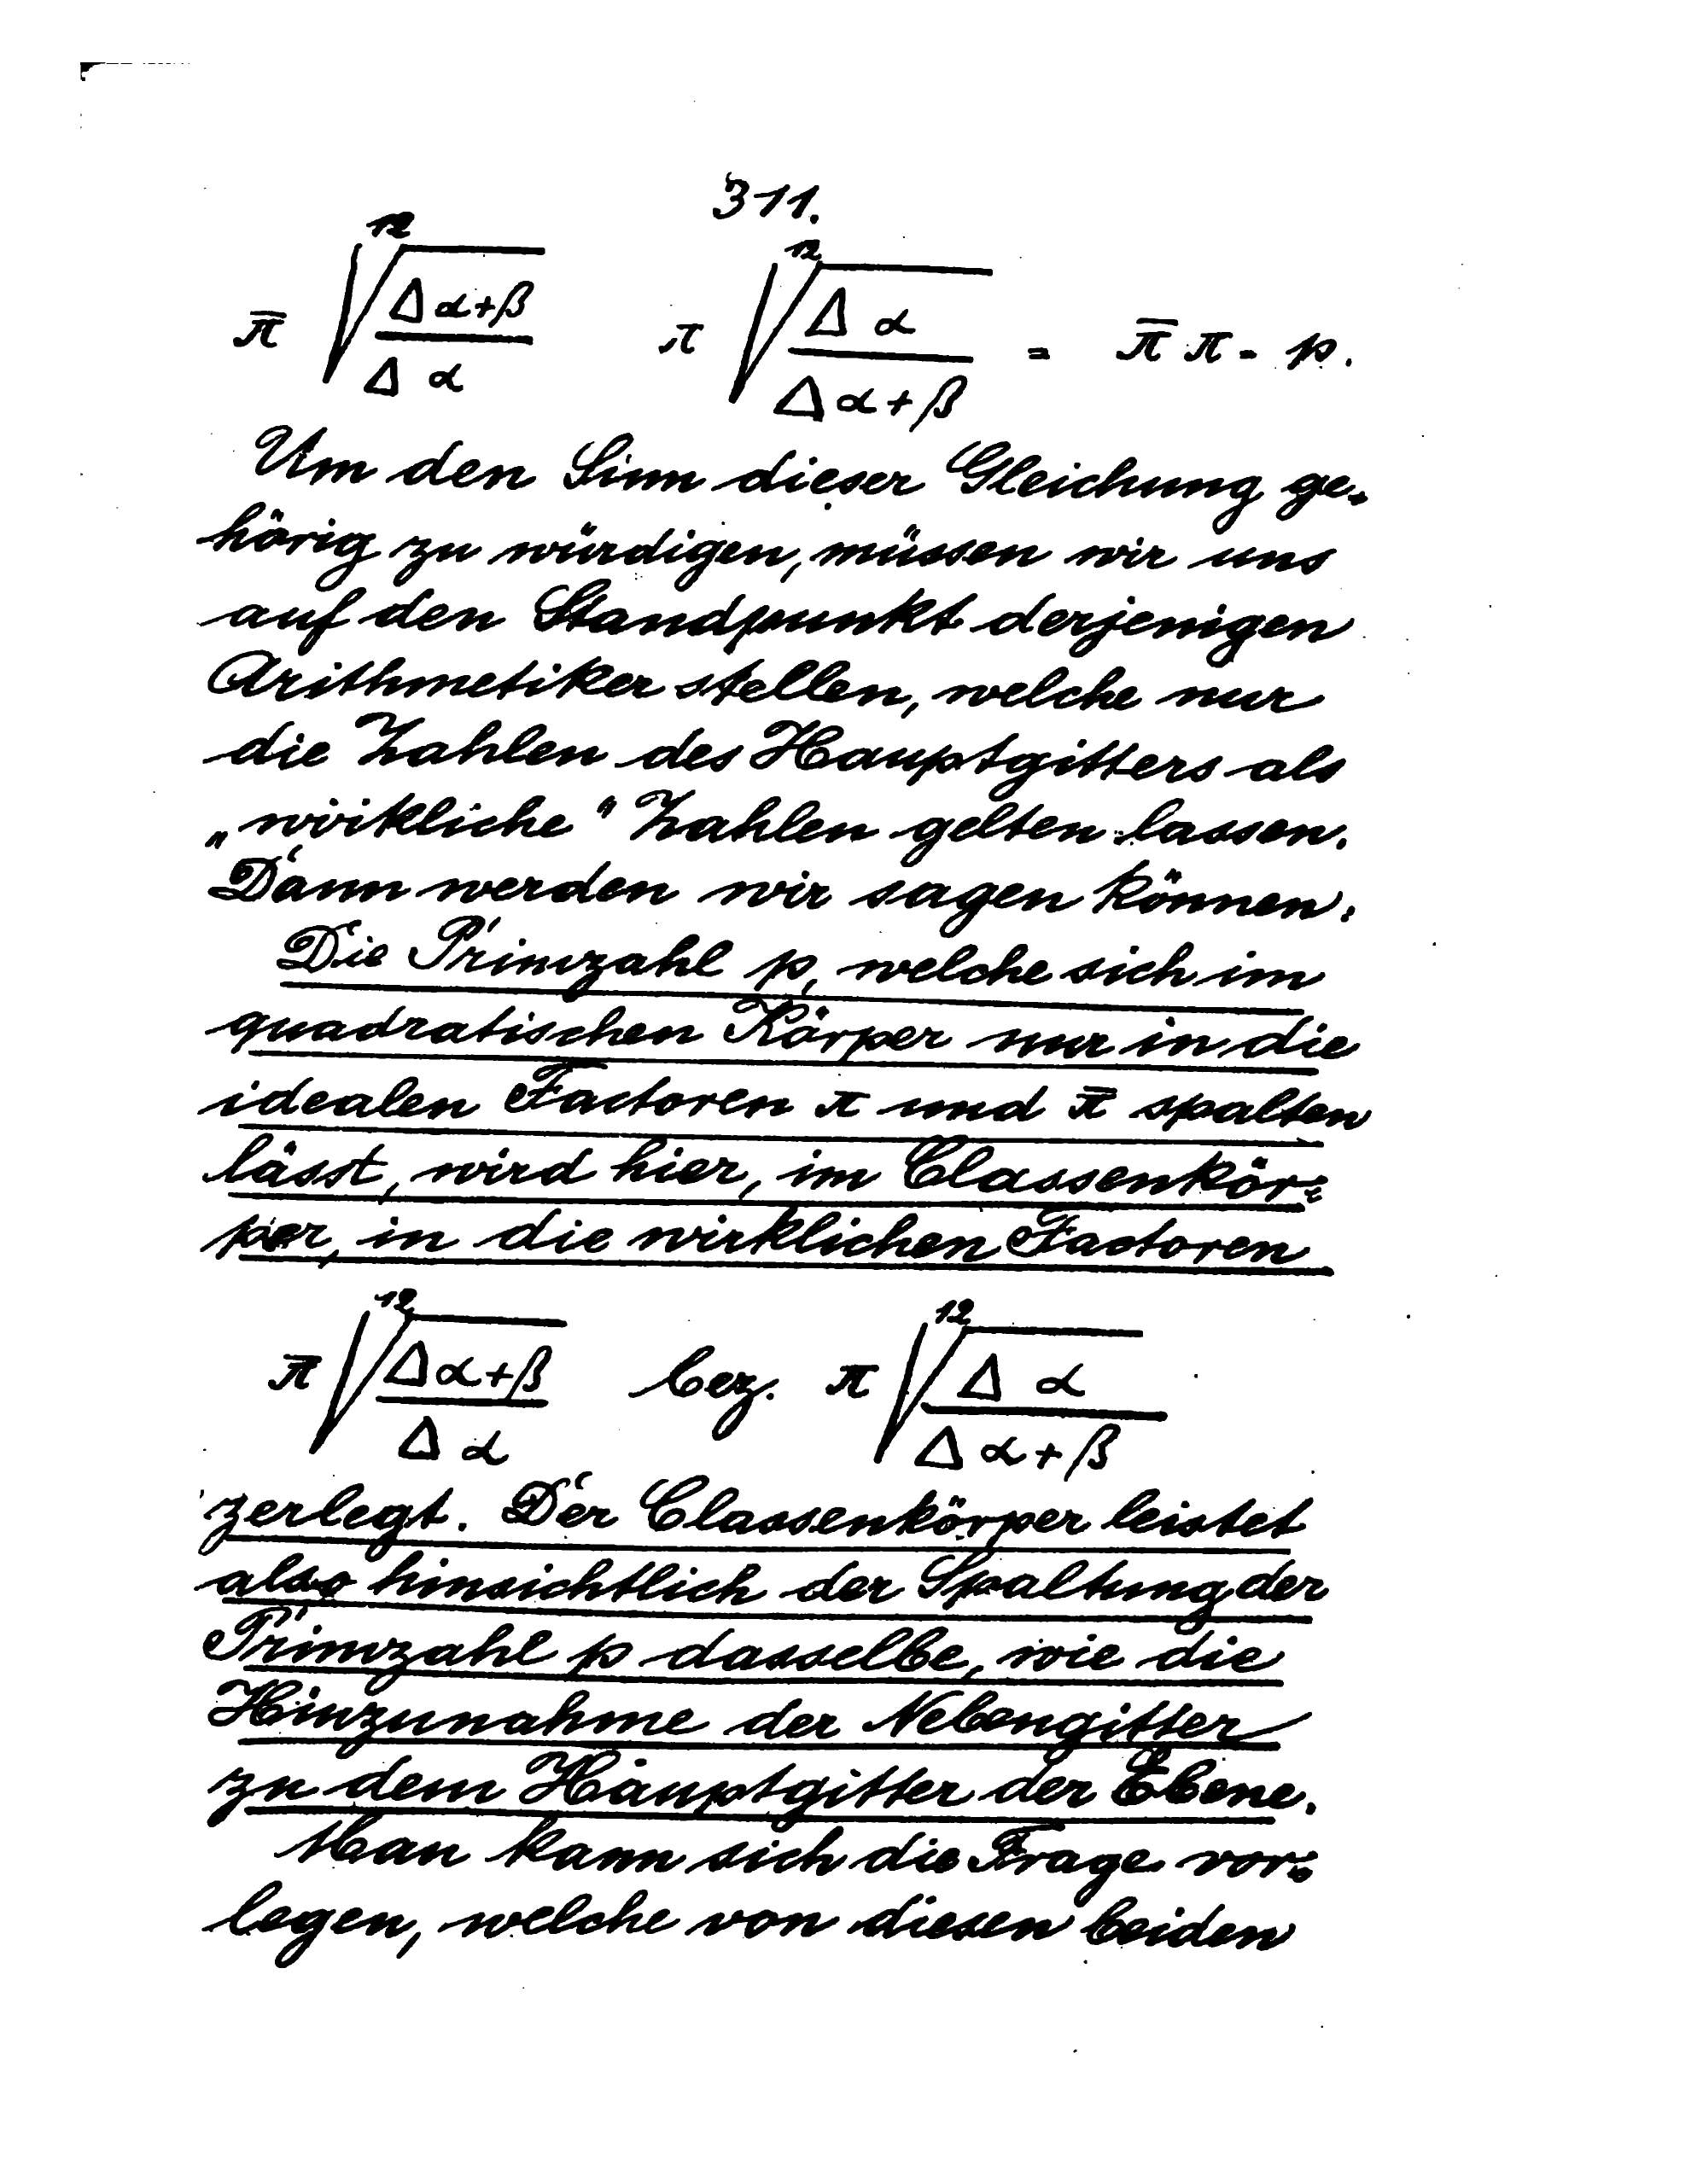 311.
π̄ \sqrt[12]{\frac{Δ α+β}{Δ α}} π \sqrt[12]{\frac{Δ α}{Δ α+β}} = π̄ π = p.
Um den Sinn dieser Gleichung ge-
hörig zu würdigen, müssen wir uns
auf den Standpunkt derjenigen
Arithmetiker stellen, welche nur
die Zahlen des Hauptgitters als
„wirkliche“ Zahlen gelten lassen.
Dann werden wir sagen können:
Die Primzahl p, welche sich im
quadratischen Körper nur in die
idealen Factoren π und π̄ spalten
lässt, wird hier, im Classenkör-
per, in die wirklichen Factoren
π̄ \sqrt[12]{\frac{Δ α+β}{Δ α}} bez. π \sqrt[12]{\frac{Δ α}{Δ α+β}}
zerlegt. Der Classenkörper leistet
also hinsichtlich der Spaltung der
Primzahl p dasselbe, wie die
Hinzunahme der Nebengitter
zu dem Hauptgitter der Ebene.
Man kann sich die Frage vor-
legen, welche von diesen beiden